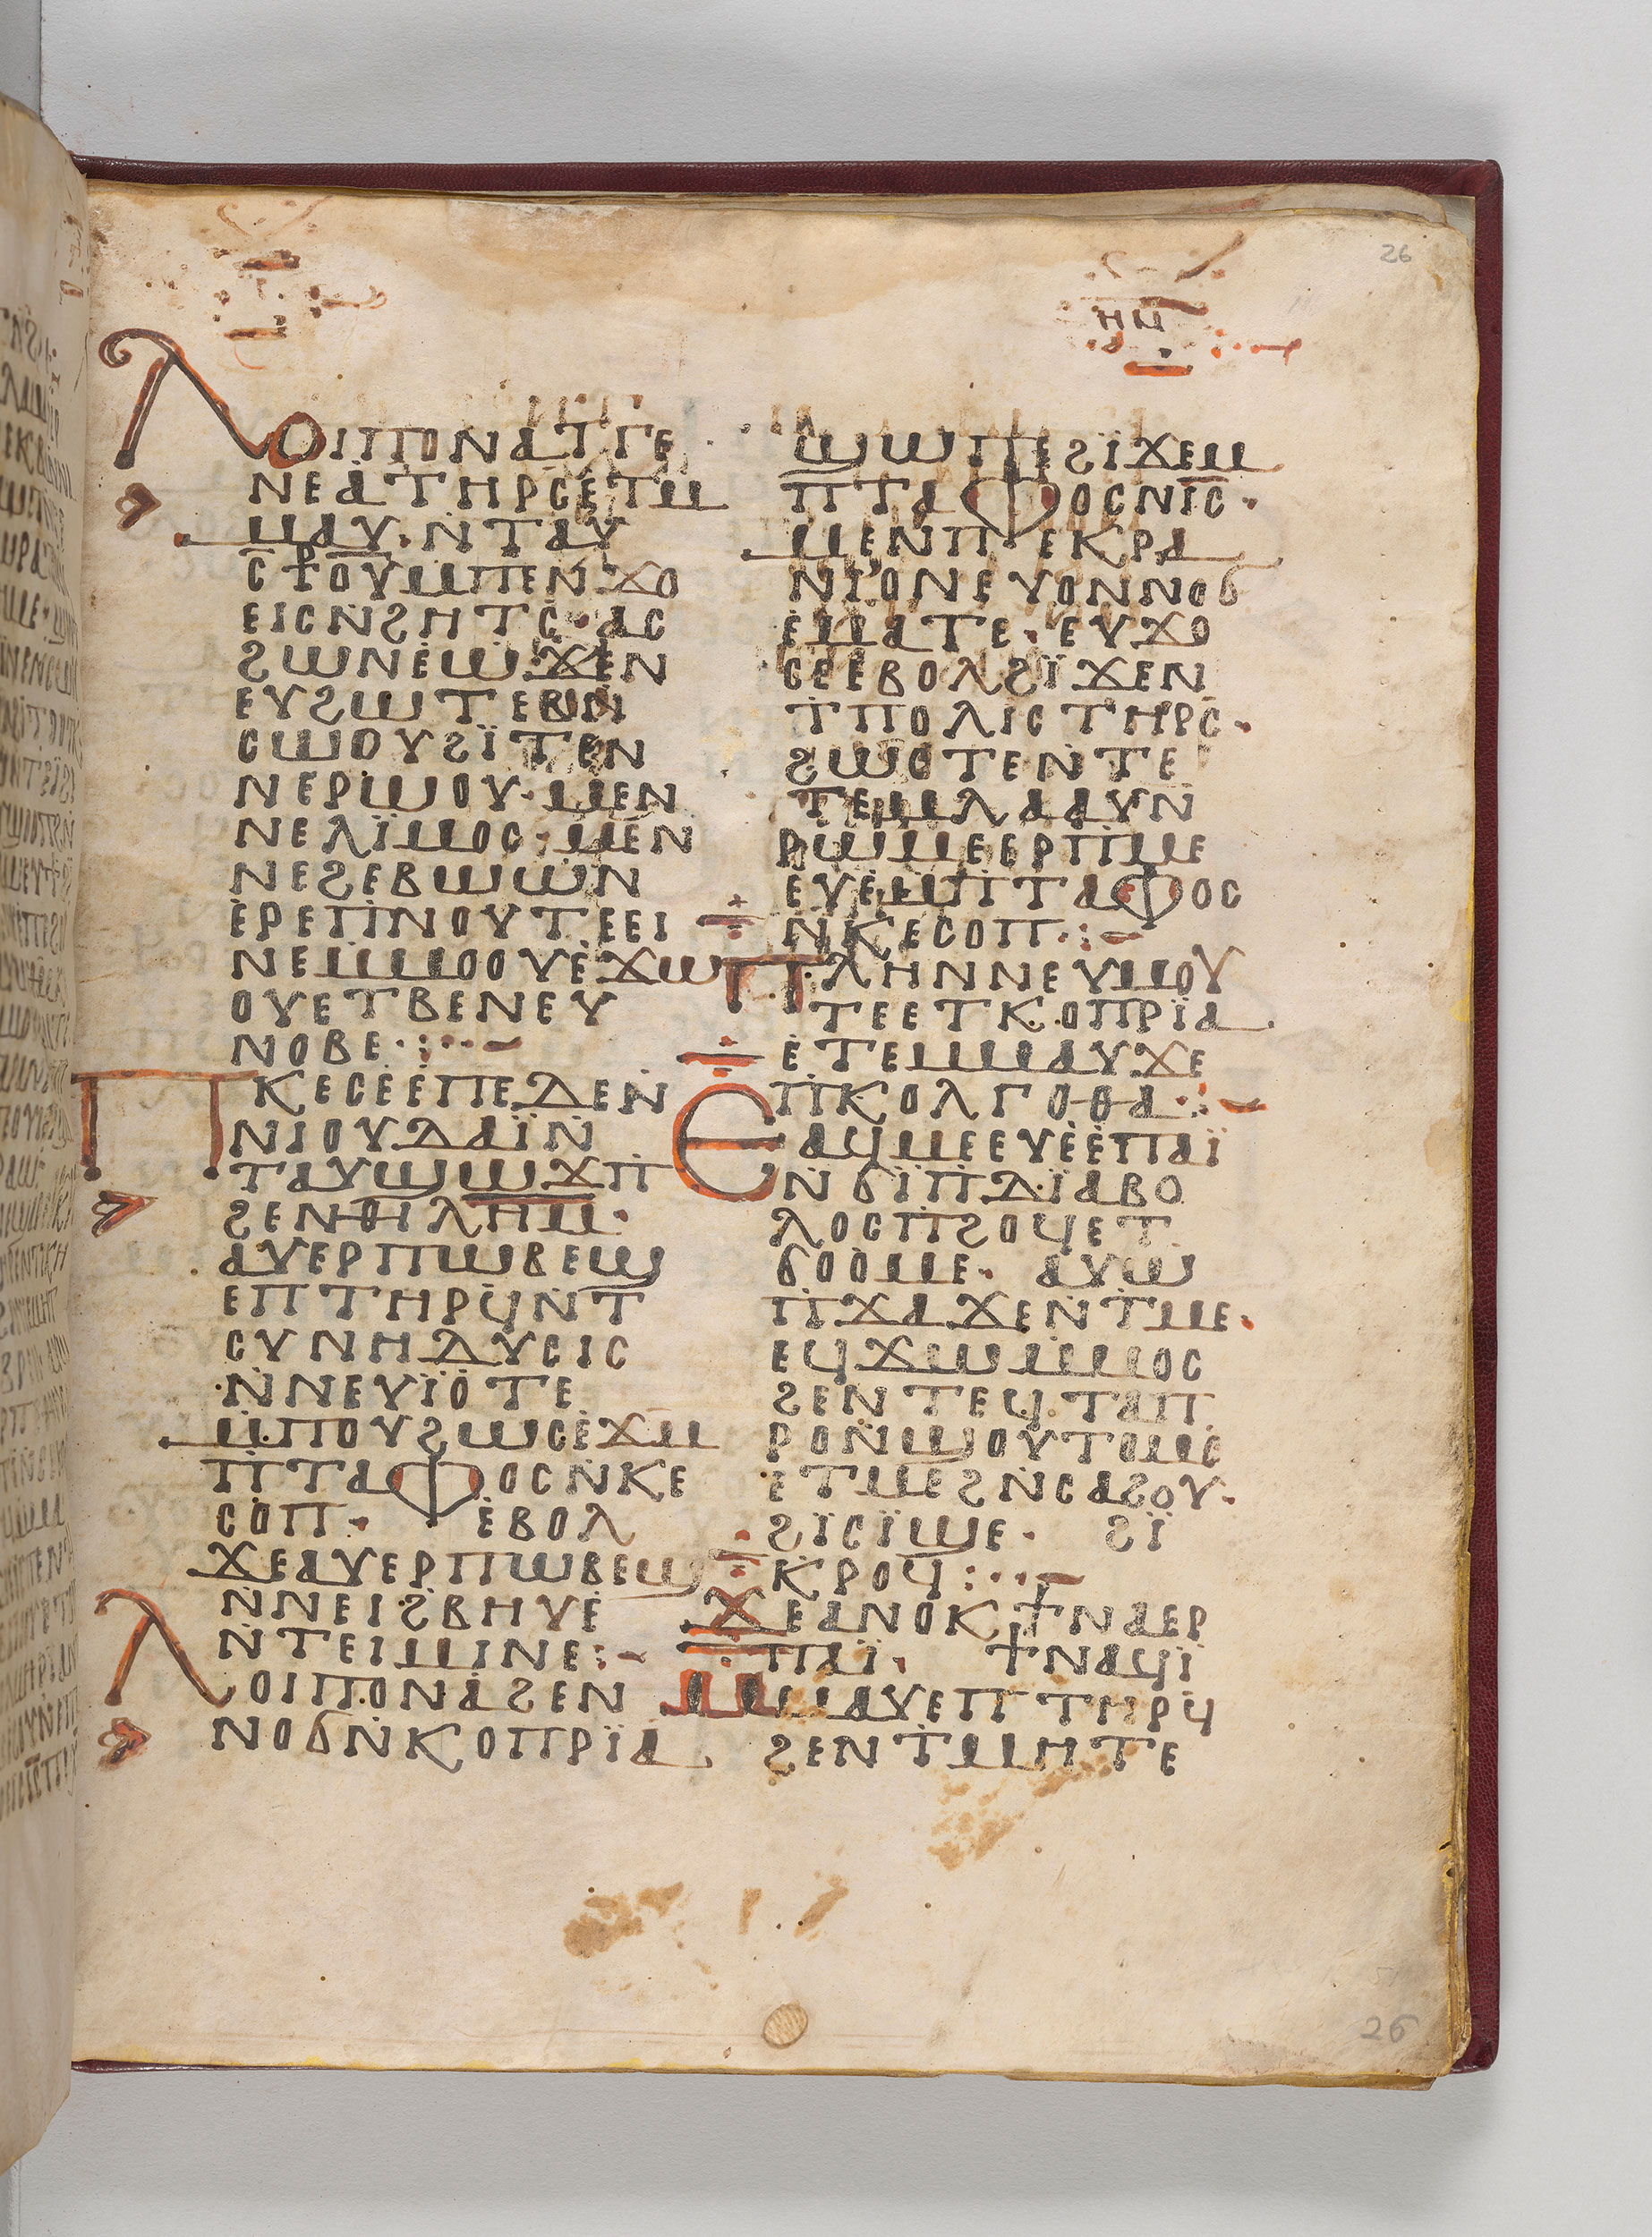 26
ⲙⲏ
ⲗⲟⲓⲡⲟⲛⲁⲧⲅⲉ
ⲛⲉⲁⲧⲏⲣⲥⲉⲧⲙ
ⲙⲁⲩ·ⲛ̇ⲧⲁⲩ
ⲥϯⲟⲩⲙⲡⲉⲛϫⲟ
ⲉⲓⲥⲛ̇ϩⲏⲧⲥ·ⲁⲥ
ϩⲱⲛⲉ̇ⲱϫⲉⲛ
ⲉⲩϩⲱⲧⲉⲃⲙ̇
ⲥⲱⲟⲩϩⲓ̈ⲧⲉⲛ
ⲛⲉⲣⲱⲟⲩ·ⲙⲉⲛ
ⲛⲉⲗⲓ̈ⲙⲟⲥ·ⲙⲉⲛ
ⲛⲉϩⲉⲃⲱⲱⲛ
ⲉ̇ⲣⲉⲡⲛⲟⲩⲧⲉⲉⲓ
ⲛⲉⲙⲙⲟⲟⲩⲉ̇ϫⲱ
ⲟⲩⲉⲧⲃⲉⲛⲉⲩ
ⲛⲟⲃⲉ·:··–
ⲡⲕⲉⲥⲉⲉ̇ⲡⲉⲇⲉⲛ
ⲛⲓⲟⲩⲇⲁⲓ̈ⲛ̇
ⲧⲁⲩϣⲱϫⲡ̇
ϩⲉⲛⲑⲓⲗⲏⲙ·
ⲁⲩⲉⲣⲡⲱⲃⲉϣ
ⲉⲡⲧⲏⲣϥⲛ̇ⲧ
ⲥⲩⲛⲏⲇⲩⲥⲓⲥ
ⲛ̇ⲛⲉⲩⲓ̈ⲟⲧⲉ
ⲙ̇ⲡⲟⲩϩⲱⲥⲉ̇ϫⲙ
ⲡ̇ⲧⲁⲫⲟⲥⲛ̇ⲕⲉ
ⲥⲟⲡ· ⲉ̇ⲃⲟⲗ
ϫⲉⲁⲩⲉⲣⲡⲱⲃⲉϣ
ⲛ̇ⲛⲉⲓϩⲃⲏⲩⲉ̇
ⲛ̇ⲧⲉⲓⲙⲓⲛⲉ:–
ⲗⲟⲓⲡⲟⲛⲁϩⲉⲛ
ⲛⲟϭⲛ̇ⲕⲟⲡⲣⲓ̈ⲁ
ϣⲱⲡⲉϩⲓ̈ϫⲉⲙ
ⲡⲧⲁⲫⲟⲥⲛⲓ̅ⲥ̅·
ⲙⲉⲛⲡⲉⲕⲣⲁ
ⲛⲓ̈ⲟⲛⲉⲩⲟⲛⲛⲟϭ
ⲉ̇ⲙⲁⲧⲉ·ⲉⲩϫⲟ
ⲥⲉⲉⲃⲟⲗϩⲓ̈ϫⲉⲛ
ⲧ̇ⲡⲟⲗⲓⲥⲧⲏⲣⲥ·
ϩⲱⲥⲧⲉⲛ̇ⲧⲉ
ⲧⲉⲙⲗⲁⲁⲩⲛ̇
ⲣⲱⲙⲉⲉⲣⲡ̇ⲙⲉ
ⲉⲩⲉ̇ⲙ̇ⲡ̇ⲧⲁⲫⲟⲥ
ⲛ̇ⲕⲉⲥⲟⲡ·:–
ⲡⲗⲏⲛⲛⲉⲩⲙⲟⲩ
ⲧⲉⲉⲧⲕⲟⲡⲣⲓ̈ⲁ
ⲉ̇ⲧⲉⲙⲙⲁⲩϫⲉ
ⲡ̇ⲕⲟⲗⲅⲟⲑⲁ·:–
ⲉⲁϥⲙⲉⲉⲩⲉ̇ⲉ̇ⲡⲁⲓ̈
ⲛ̇ϭⲓ̈ⲡ̇ⲇⲓ̈ⲁⲃⲟ
ⲗⲟⲥⲡ̇ϩⲟϥⲉⲧ
ϭⲟⲟⲙⲉ· ⲁⲩⲱ
ⲡ̇ϫⲁϫⲉⲛ̇ⲧⲙⲉ·
ⲉϥϫⲱⲙⲙⲟⲥ
ϩⲉⲛⲧⲉϥⲧⲁⲡ
ⲣⲟⲛ̇ϣⲟⲩⲧⲟⲙⲥ
ⲉ̇ⲧⲙⲉϩⲛ̇ⲥⲁϩⲟⲩ·
ϩⲓ̈ⲥⲓ̈ϣⲉ· ϩⲓ̈
ⲕⲣⲟϥ:··–
ϫⲉⲁⲛⲟⲕϯⲛⲁⲉⲣ
ⲡⲁⲓ̈· ϯⲛⲁϥⲓ̈
ⲙⲙⲁⲩⲉⲡⲧⲏⲣϥ
ϩⲉⲛⲧⲙⲏⲧⲉ
26